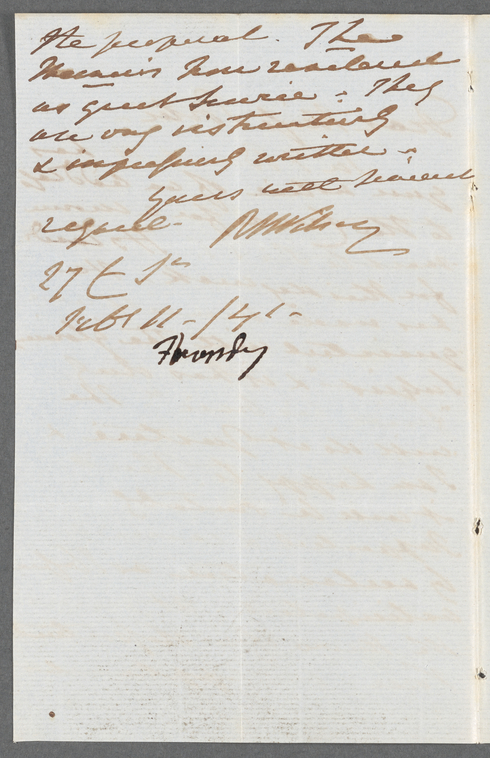 the proposal. The
Memoirs have rendered
us great service. They
are very instructively
& impressively written.
Yours with sincere
regard
27 C St
Feb 11